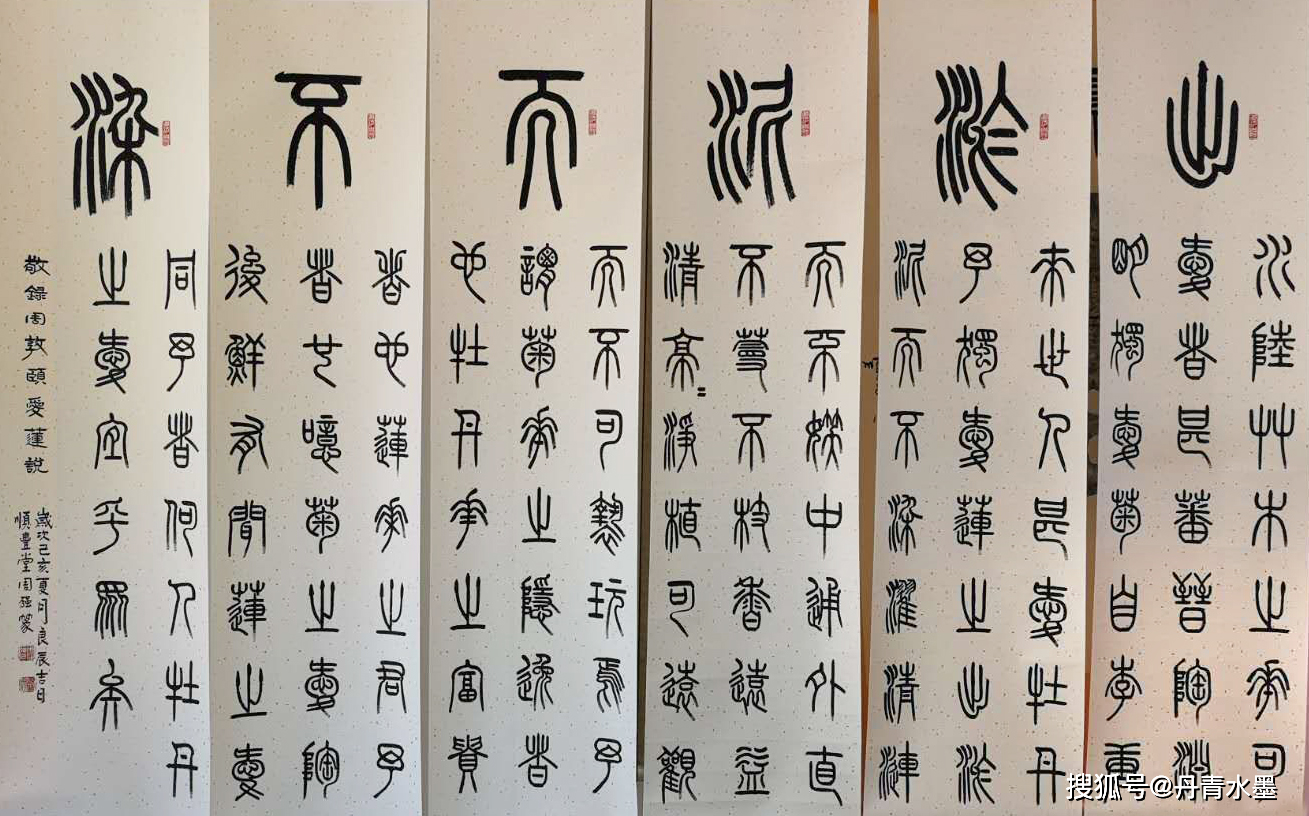 出
水陸艸木之華可
愛者甚蕃晉陶淵
明獨愛菊自李唐
淤
來世人甚愛牡丹
予獨愛蓮之出淤
泥而不染濯清漣
泥
而不妖中通外直
不蔓不枝香遠益
清亭=淨植可遠觀
而
而不可褻玩焉予
謂菊華之隱逸者
也牡丹華之富貴
不
者也蓮華之君子
者也噫菊之愛陶
後鮮有聞蓮之愛
染
同予者何人牡丹
之愛宜乎眾矣
敬錄周敦頤愛蓮說
歲次己亥夏月良辰吉日
順豊堂周强篆
搜狐号@丹青水墨